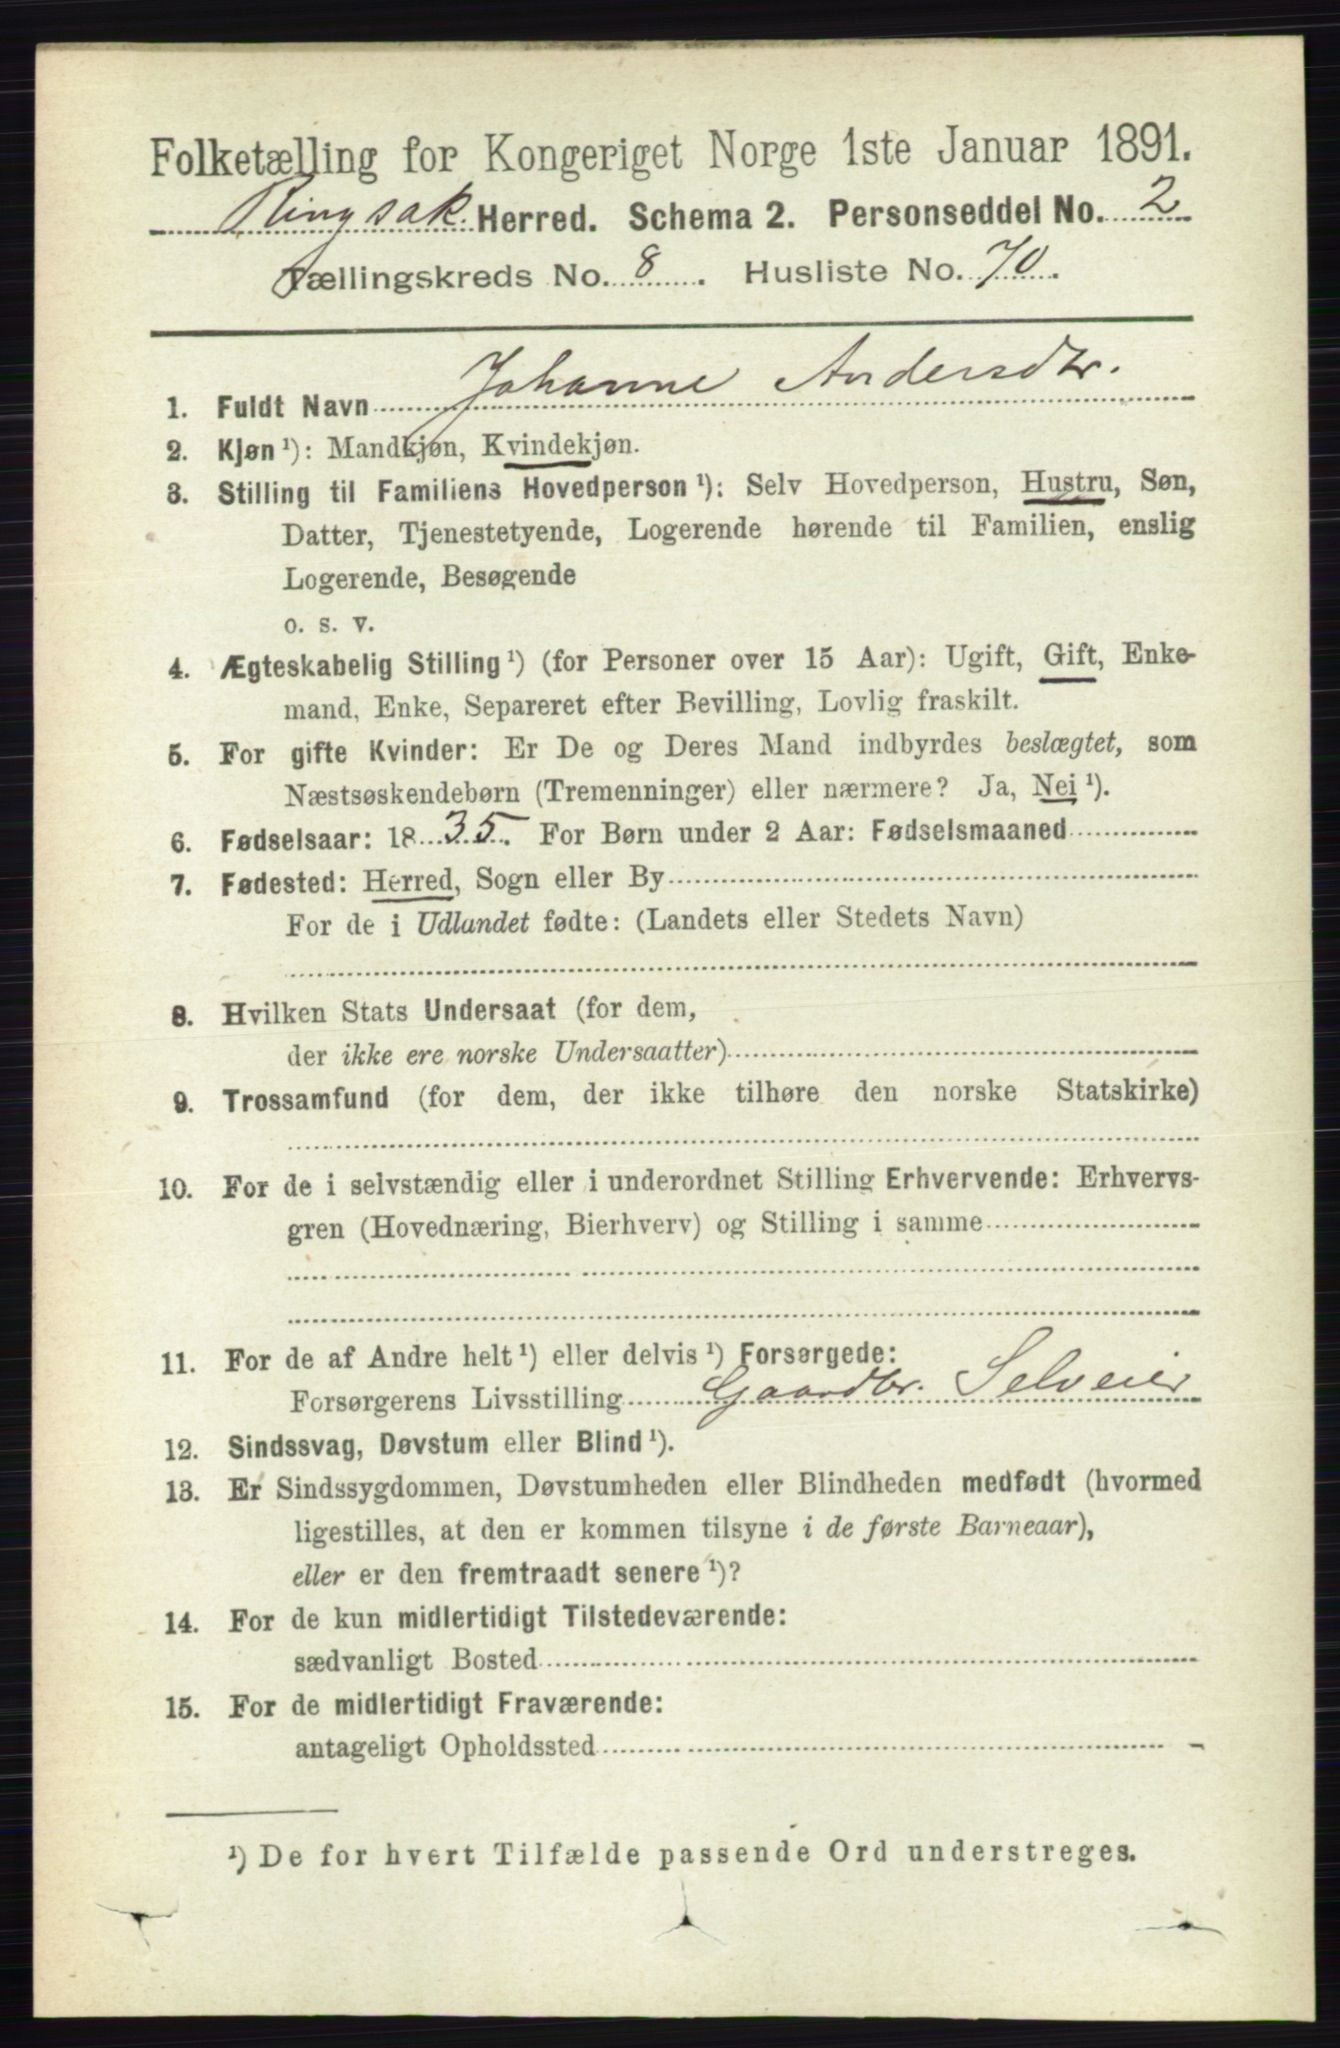 Folketælling for Kongeriget Norge 1ste Januar 1891.
Ringsak. Herred. Schema 2. Personseddel No. 2
Tællingskreds No. 8. Husliste No. 70.
1. Fuldt Navn Johanne Andersdtr.
2. Kjøn ¹): Mandkjøn, Kvindekjøn.
3. Stilling til Familiens Hovedperson ¹): Selv Hovedperson, Hustru, Søn,
Datter, Tjenestetyende, Logerende hørende til Familien, enslig
Logerende, Besøgende
o. s. v.
4. Ægteskabelig Stilling ¹) (for Personer over 15 Aar): Ugift, Gift, Enke-
mand, Enke, Separeret efter Bevilling, Lovlig fraskilt.
5. For gifte Kvinder: Er De og Deres Mand indbyrdes beslægtet, som
Næstsøskendebørn (Tremenninger) eller nærmere? Ja, Nei ¹).
6. Fødselsaar: 1835. For Børn under 2 Aar: Fødselsmaaned
7. Fødested: Herred, Sogn eller By
For de i Udlandet fødte: (Landets eller Stedets Navn)
8. Hvilken Stats Undersaat (for dem,
der ikke ere norske Undersaatter)
9. Trossamfund (for dem, der ikke tilhøre den norske Statskirke)
10. For de i selvstændig eller i underordnet Stilling Erhvervende: Erhvervs-
gren (Hovednæring, Bierhverv) og Stilling i samme
11. For de af Andre helt ¹) eller delvis ¹) Forsørgede:
Forsørgerens Livsstilling Gaardbr. Selveier
12. Sindssvag, Døvstum eller Blind ¹).
13. Er Sindssygdommen, Døvstumheden eller Blindheden medfødt (hvormed
ligestilles, at den er kommen tilsyne i de første Barneaar),
eller er den fremtraadt senere ¹)?
14. For de kun midlertidigt Tilstedeværende:
sædvanligt Bosted
15. For de midlertidigt Fraværende:
antageligt Opholdssted
¹) De for hvert Tilfælde passende Ord understreges.